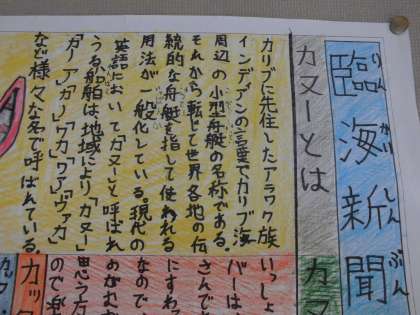 臨海新聞
りんかいしんぶん
カヌーとは
カリブに先住したアラワク族
インデアンの言葉でカリブ海
周辺の小型舟艇の名称である。
それから転じて世界各地の伝
統的な舟艇を指して使われる
用法が一般化している。現代の
英語においてカヌーと呼ばれ
うる船舶は、地域により「カヌー」
「ガー」「アガー」「ワカ」「ワア」「ヴァカ」
など様々な名で呼ばれている。
カヌ
いっしょ
バーは
さんで
にすわっ
なので
おがむ
思う方
ので楽
カッタ